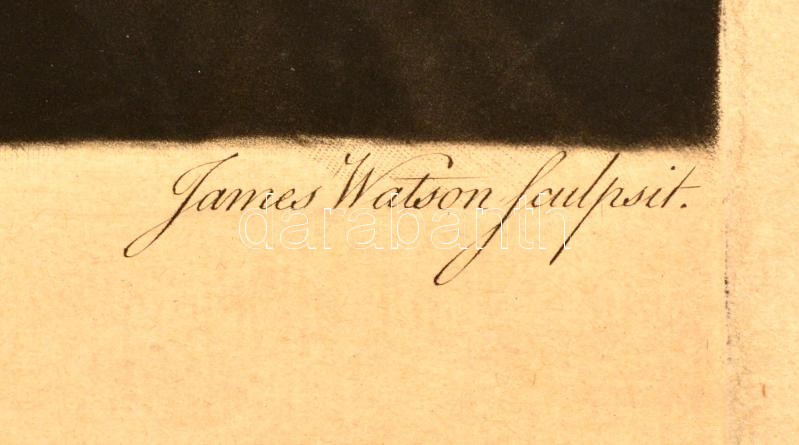 James Watson ſculpsit.
darabanth